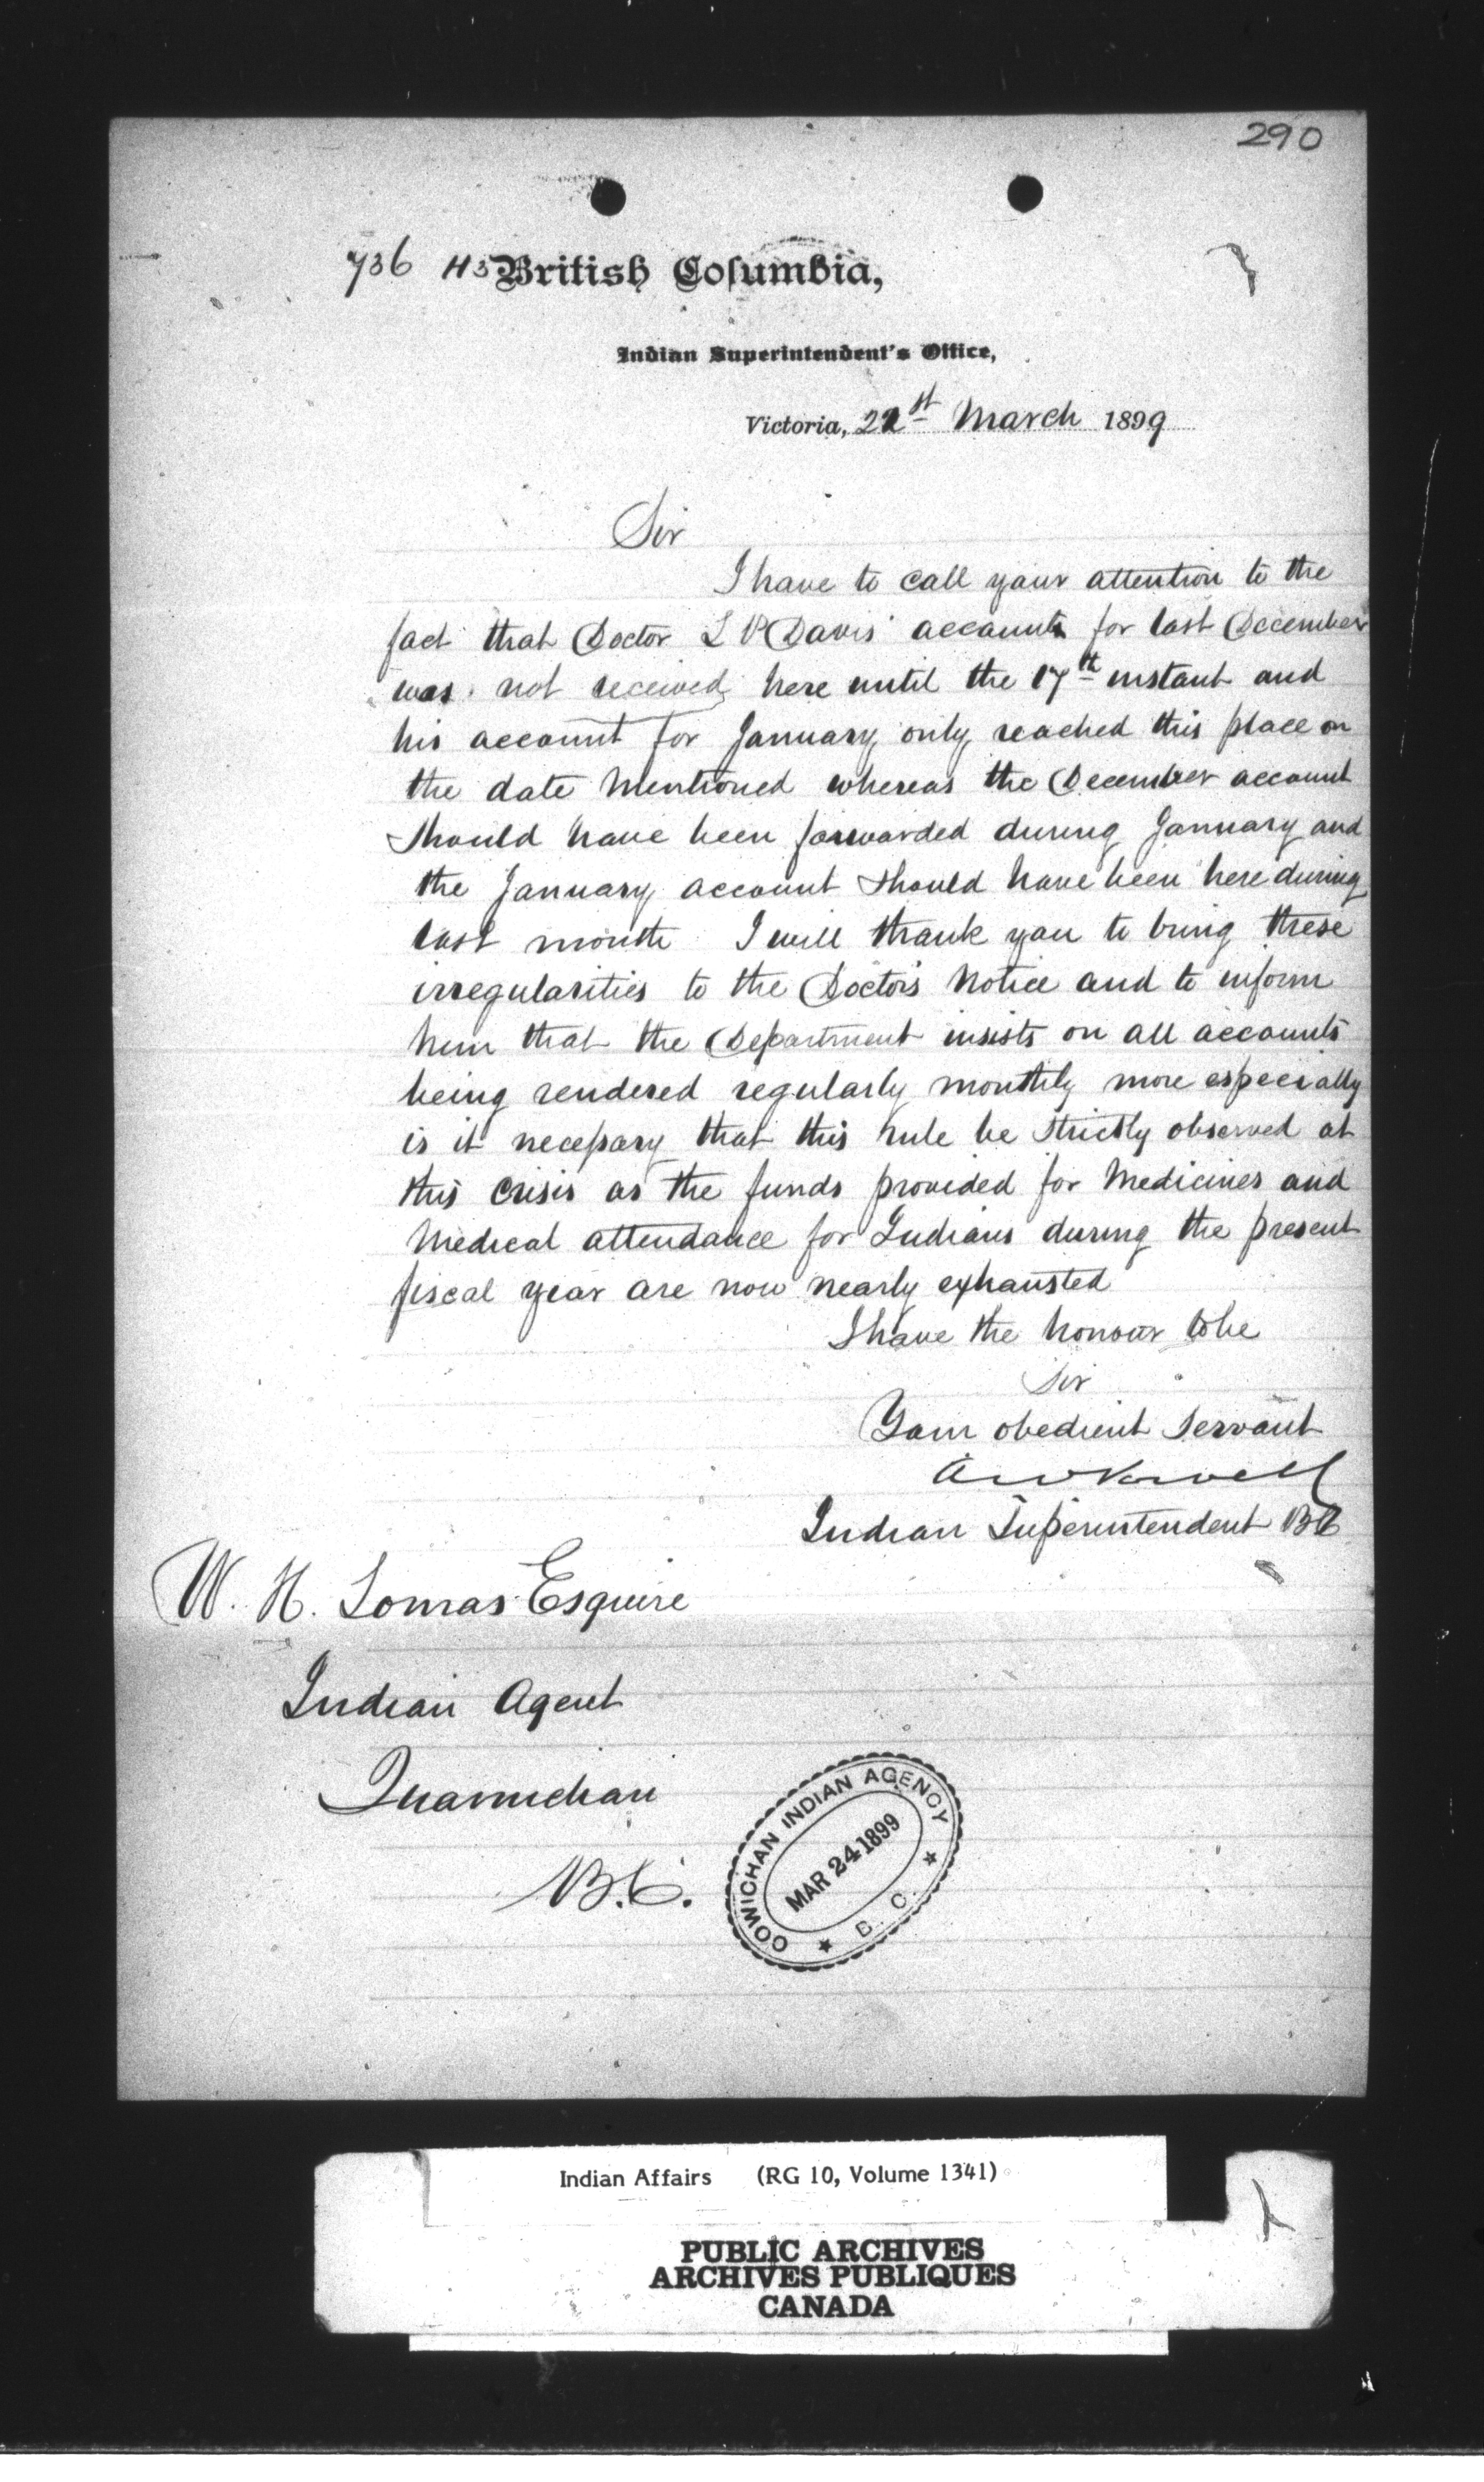 290
736 H3 British Columbia,
Indian Superintendent's Office,
Victoria, 21st March 1899
Sir
I have to call your attention to the
fact that Doctor L P Davis' account for last December
was not received here until the 17th instant and
his account for January only reached this place on
the date mentioned whereas the December account
should have been forwarded during January and
the January account should have been here during
last month I will thank you to bring these
irregularities to the Doctor's notice and to inform
him that the Department insists on all accounts
being rendered regularly monthly more especially
is it necessary that this rule be strictly observed at
this crisis as the funds provided for Medicines and
Medical attendance for Indians during the present
fiscal year are now nearly exhausted
I have the honour to be
Sir
Your obedient Servant
A W Vowell
Indian Superintendent BC
W. H. Lomas Esquire
Indian Agent
Quamichan
B.C.
COWICHAN INDIAN AGENCY
MAR 24 1899
B. C.
Indian Affairs (RG 10, Volume 1341)
PUBLIC ARCHIVES
ARCHIVES PUBLIQUES
CANADA